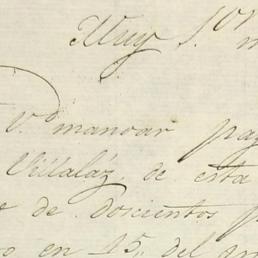 Muy S.or m
V.d mandar pag
Villaláz, de esta
e de doscientos p
o en 15, del pr